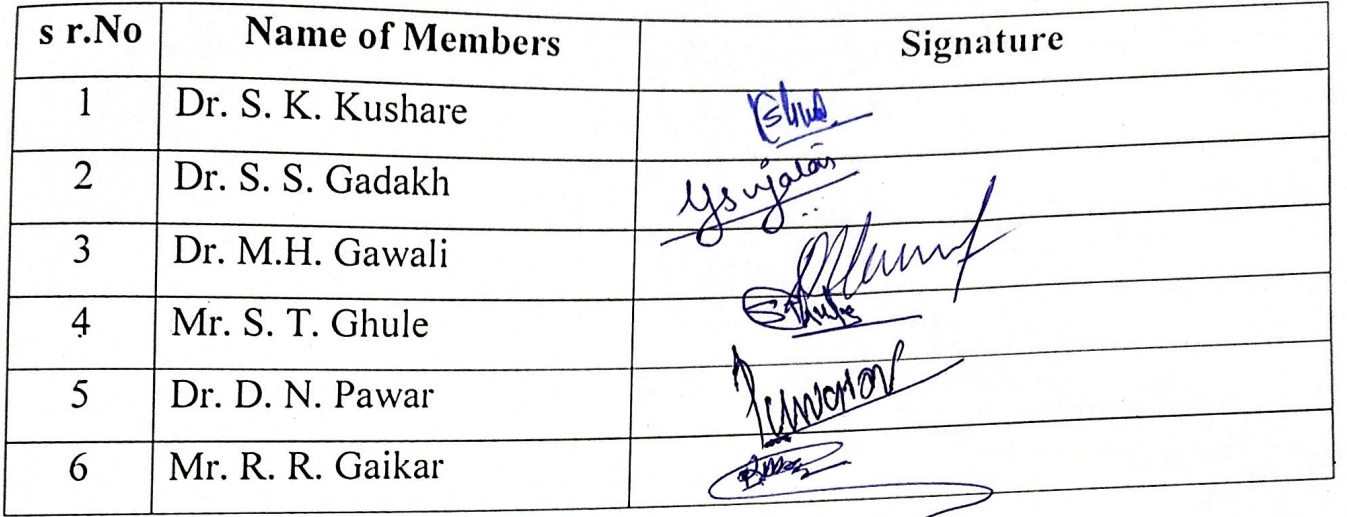 s r.No Name of Members Signature
1 Dr. S. K. Kushare
2 Dr. S. S. Gadakh
3 Dr. M.H. Gawali
4 Mr. S. T. Ghule
5 Dr. D. N. Pawar
6 Mr. R. R. Gaikar